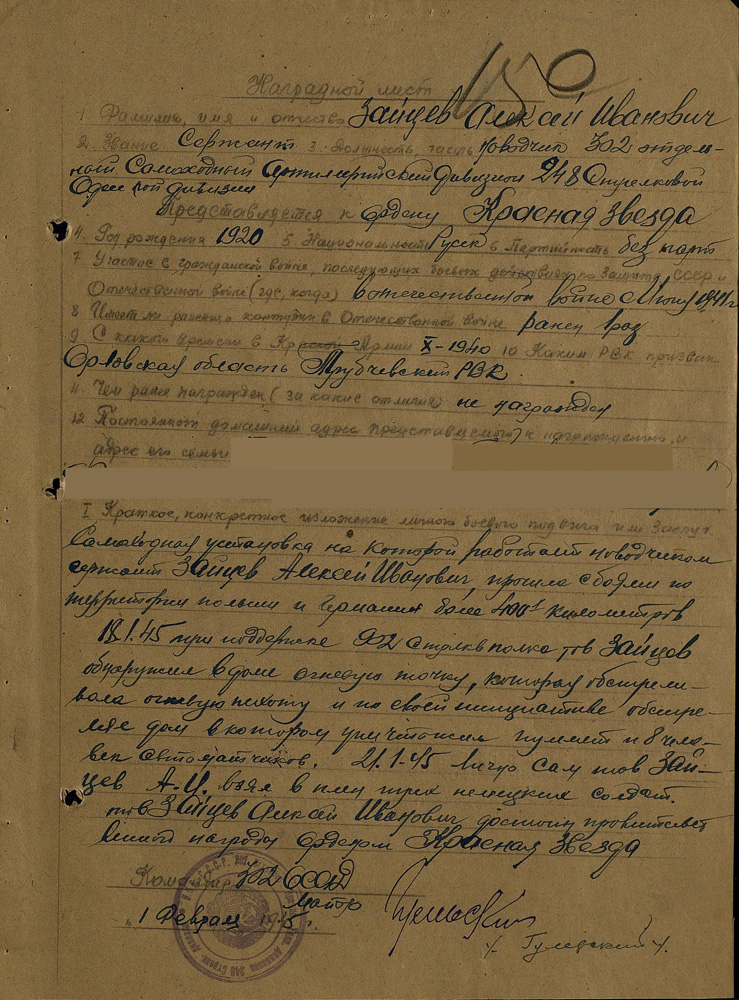 150
Наградной лист
1 Фамилия, имя и отчество Зайцев Алексей Иванович
2. Звание Сержант 3. Должность, часть Новодчик 302 отдель-
ный Самоходный Артилерийский дивизион 248 Стрелковой
Одесской дивизии
Представляется к ордену Красная звезда
4 Год рождения 1920 5. Национальность Русск 6 Партийность без парт
7 Участие в гражданской войне, последующих боевых действиях по защите СССР и
Отечественной войне (где, когда) в отечественной войне с Июня 1941 г
8 Имеет ли ранения и контузии в Отечественной войне ранен 1 раз
9 С какого времени в Красной Армии X-1940 10 Каким РВК призван
Орловская область Трубчевский РВК
11 Чем ранее награжден (за какие отличия) не награждался
12 Постоянный домашний адрес представляемого к награждению и
адрес его семьи
I Краткое, конкретное изложение личного боевого подвига или заслуг
Самоходная установка на которой работает новодчиком
сержант Зайцев Алексей Иванович, прошла с боями по
территории польши и Германии более 400 километров
18.1.45 при поддержке 902 стрелк полка тов Зайцев
обнаружил в доме огневую точку, которая обстрели-
вала пехоту и по своей инициативе обстре-
лял дом в котором уничтожил пулмет и 8 чело-
век автоматчиков. 21.1.45 Лично сам тов Зай-
цев А.И. взял в плен трех немецких солдат.
тов Зайцев Алексей Иванович достоин правительст
венной награды орденом Красная Звезда
Командир 302 ОССАД
Майор
"1 Февраля 1945 г.
/. Гулевский /.